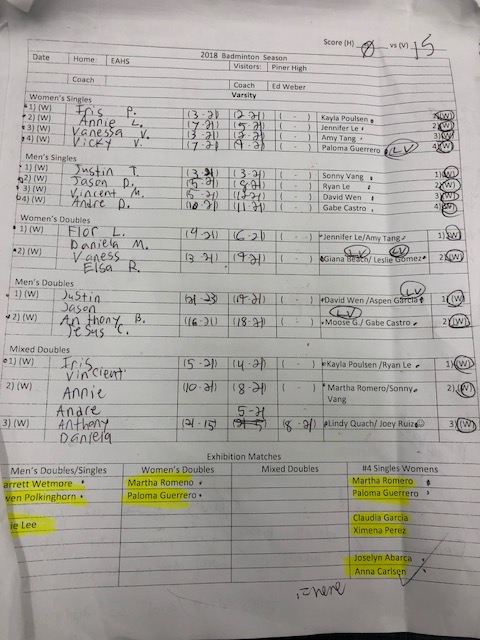 Score (H) 0 vs (V) 15
2018 Badminton Season
Date Home: EAHS Visitors: Piner High
Coach Coach Ed Weber
Varsity
Women's Singles
1) (W) Iris P. (3-21) (2-21) ( - ) Kayla Poulsen 1) (W)
2) (W) Annie L. (7-21) (5-21) ( - ) Jennifer Le 2) (W)
3) (W) Vanessa V. ( - ) Amy Tang 3) (W)
4) (W) Vicky V. (7-21) (9-21) ( - ) Paloma Guerrero LV 4) (W)
Men's Singles
1) (W) Justin T. (3-21) (3-21) ( - ) Sonny Vang 1) (W)
2) (W) Jason D. (5-21) (8-21) ( - ) Ryan Le 2) (W)
3) (W) Vincent M. (5-21) ( - ) David Wen 3) (W)
4) (W) Andre D. (10-21) (11-21) ( - ) Gabe Castro 4) (W)
Women's Doubles
1) (W) Flor L. (9-21) (6-21) ( - ) Jennifer Le/Amy Tang 1) (W)
Daniela M. LV LV
2) (W) Vaness (3-21) (9-21) ( - ) Giana Beach/ Leslie Gomez 2) (W)
Elsa R.
Men's Doubles
LV
1) (W) Justin (21-23) (19-21) ( - ) David Wen /Aspen Garcia 1) (W)
Jason LV
2) (W) Anthony B. (16-21) (18-21) ( - ) Moose G./ Gabe Castro 2) (W)
Jesus C.
Mixed Doubles
1) (W) Iris (5-21) (4-21) ( - ) Kayla Poulsen /Ryan Le 1) (W)
Vincient
2) (W) Annie (10-21) (8-21) ( - ) Martha Romero/Sonny Vang 2) (W)
Andre 5-21
3) (W) Anthony (21-15) (8-21) Lindy Quach/ Joey Ruiz 3) (W)
Daniela
Exhibition Matches
Men's Doubles/Singles Women's Doubles Mixed Doubles #4 Singles Womens
arrett Wetmore Martha Romeno Martha Romero
ven Polkinghorn Paloma Guerrero Paloma Guerrero
ie Lee Claudia Garcia
Ximena Perez
Joselyn Abarca
Anna Carlsen
.=here